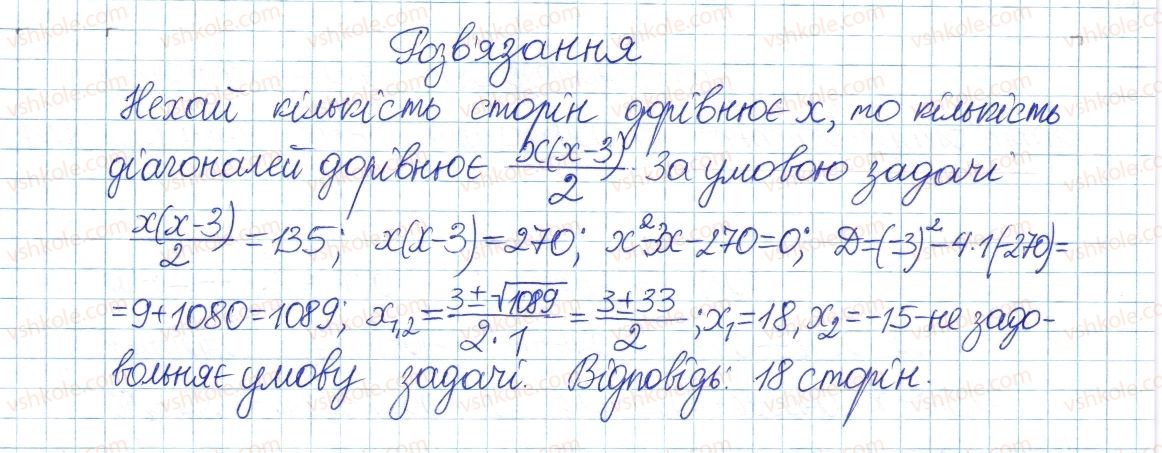 Розв'язання
Нехай кількість сторін дорівнює x, то кількість
діагоналей дорівнює x(x-3)/2. За умовою задачі
x(x-3)/2 = 135; x(x-3) = 270; x²-3x-270=0; D=(-3)²-4·1(-270)=
=9+1080=1089; x₁,₂ = (3±√1089)/(2·1) = (3±33)/2; x₁=18, x₂=-15-не задо-
вольняє умову задачі. Відповідь: 18 сторін.